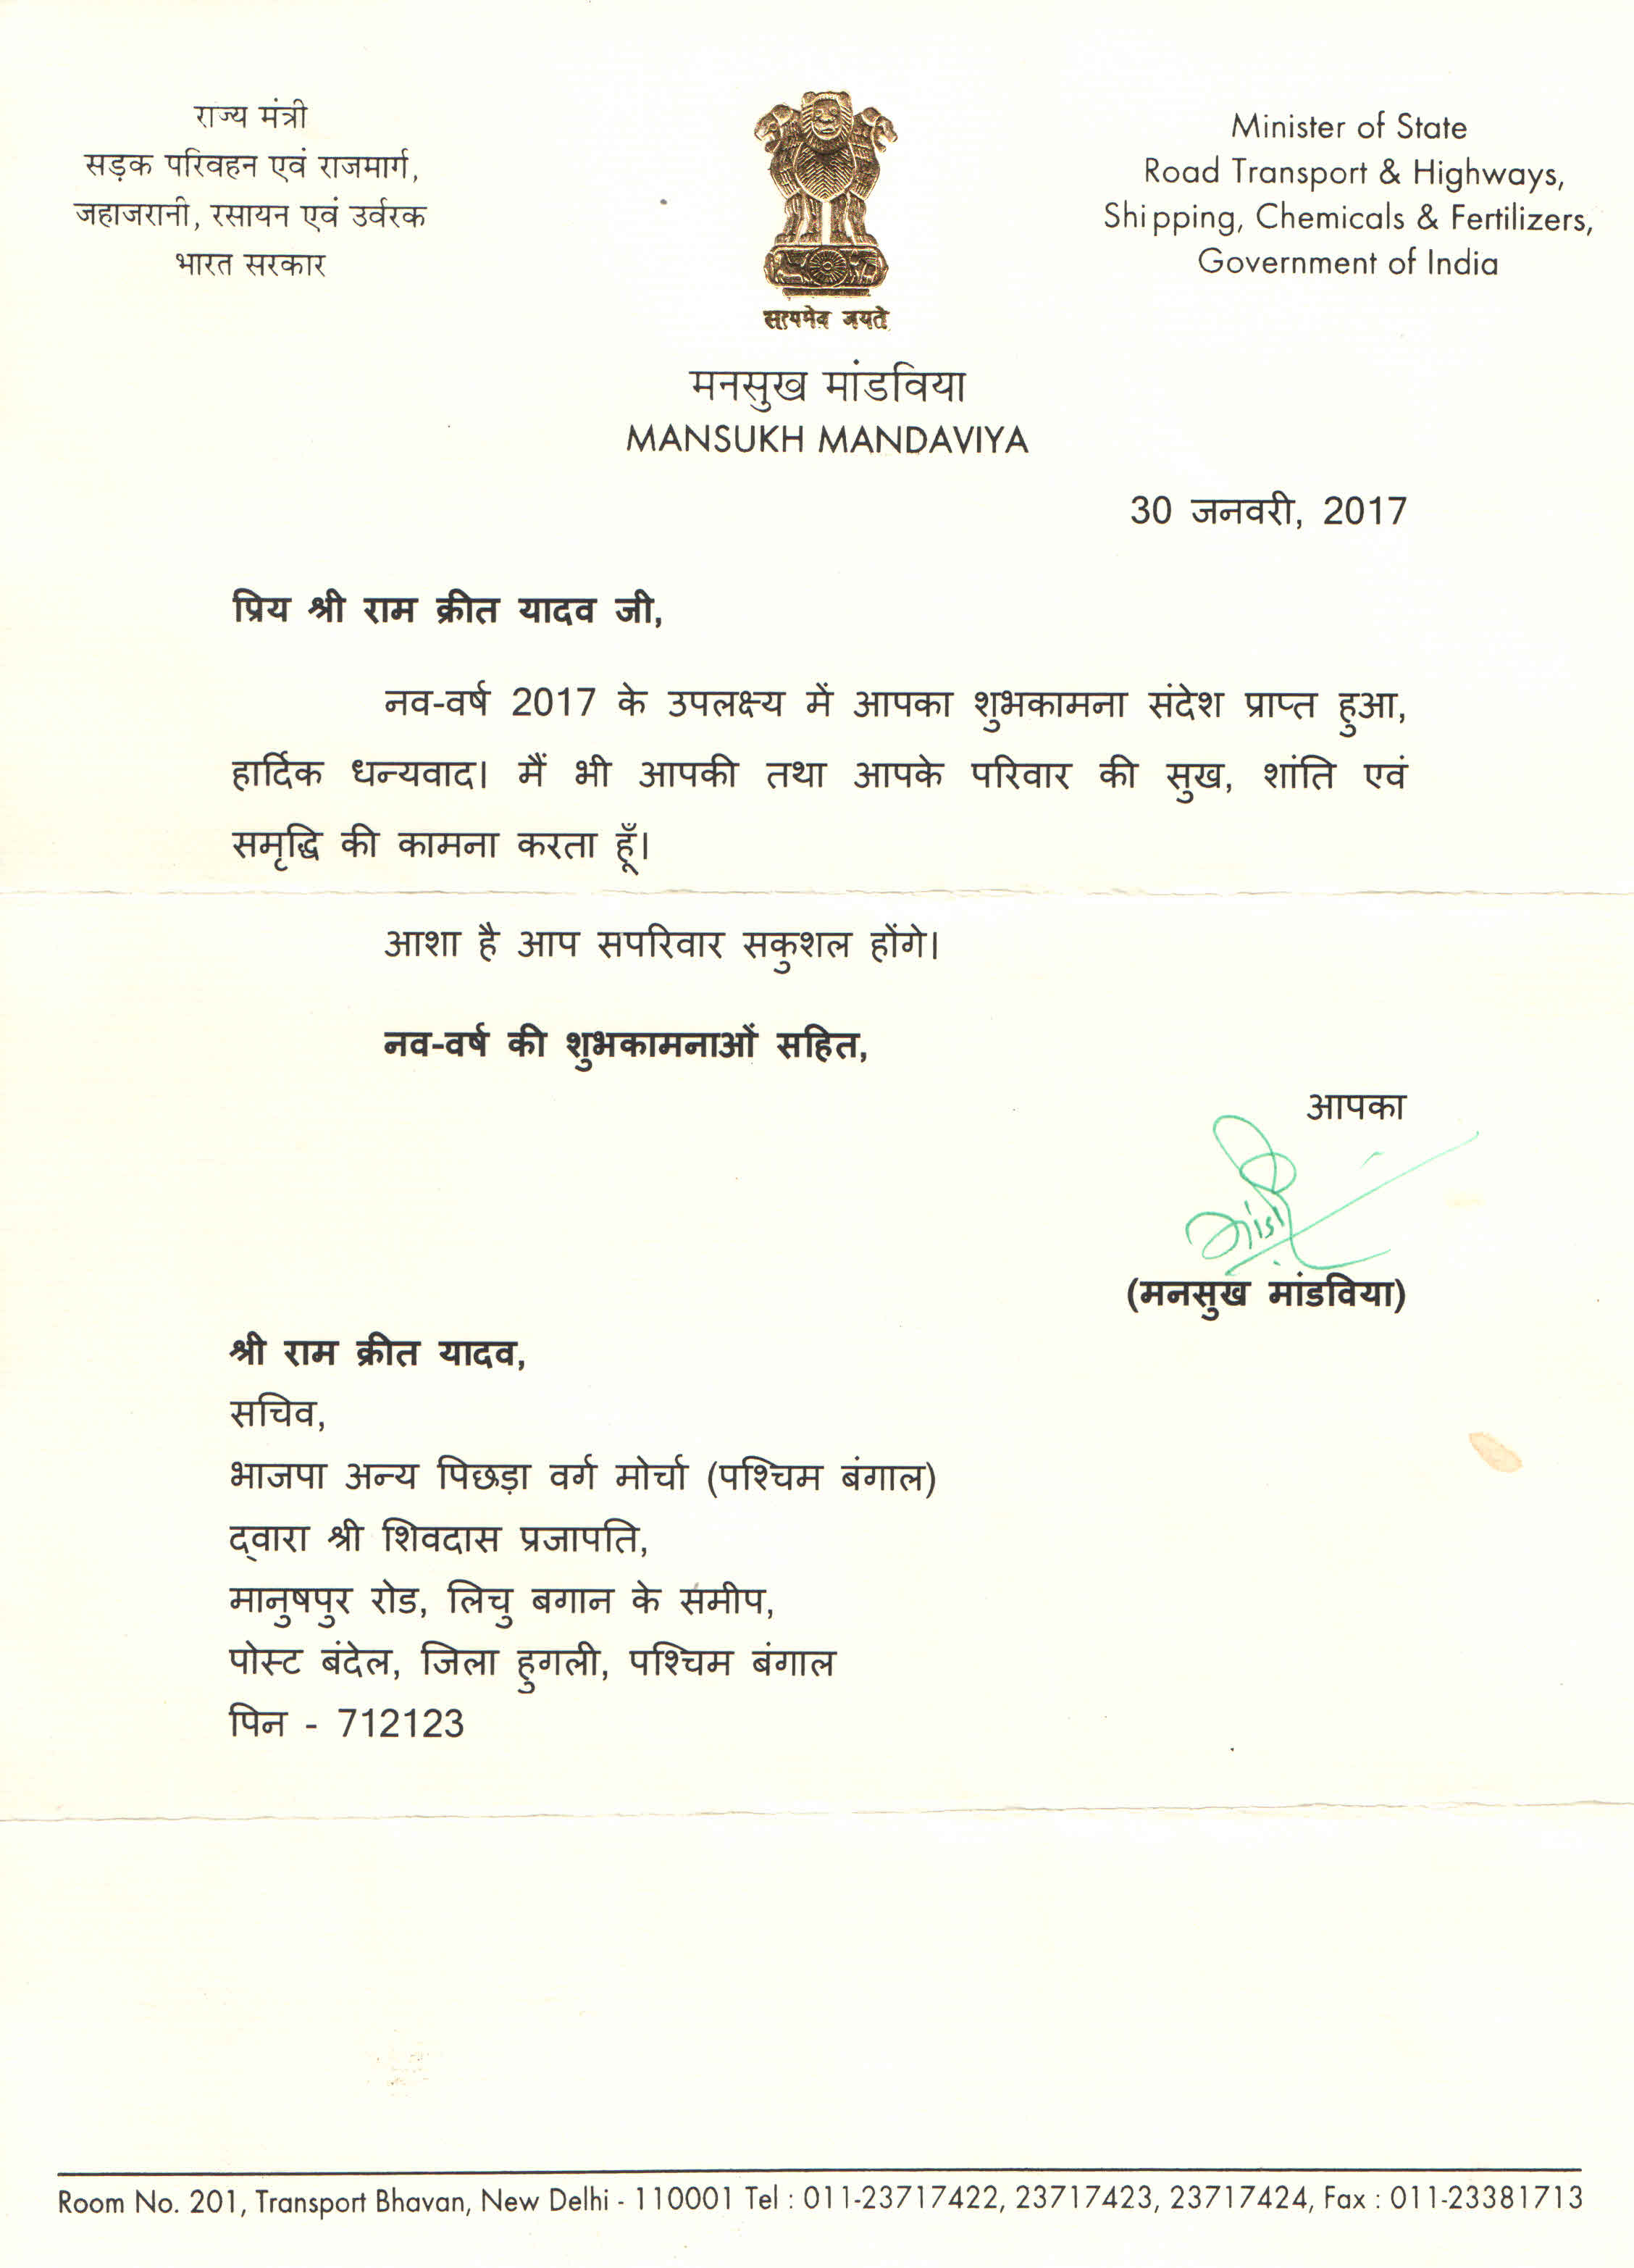 राज्य मंत्री
सड़क परिवहन एवं राजमार्ग,
जहाजरानी, रसायन एवं उर्वरक
भारत सरकार
सत्यमेव जयते
Minister of State
Road Transport & Highways,
Shipping, Chemicals & Fertilizers,
Government of India
मनसुख मांडविया
MANSUKH MANDAVIYA
30 जनवरी, 2017
प्रिय श्री राम क्रीत यादव जी,
नव-वर्ष 2017 के उपलक्ष्य में आपका शुभकामना संदेश प्राप्त हुआ,
हार्दिक धन्यवाद। मैं भी आपकी तथा आपके परिवार की सुख, शांति एवं
समृद्धि की कामना करता हूँ।
आशा है आप सपरिवार सकुशल होंगे।
नव-वर्ष की शुभकामनाओं सहित,
आपका
(मनसुख मांडविया)
श्री राम क्रीत यादव,
सचिव,
भाजपा अन्य पिछड़ा वर्ग मोर्चा (पश्चिम बंगाल)
द्वारा श्री शिवदास प्रजापति,
मानुषपुर रोड, लिचु बगान के समीप,
पोस्ट बंदेल, जिला हुगली, पश्चिम बंगाल
पिन - 712123
Room No. 201, Transport Bhavan, New Delhi - 110001 Tel : 011-23717422, 23717423, 23717424, Fax : 011-23381713